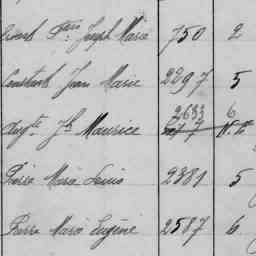 Joseph Marie 750 2
Constant Jean Marie 2297 5
Augte Jh Maurice 2683 6
Marie Louis 2381 5
Pierre Marie Eugène 2587 6